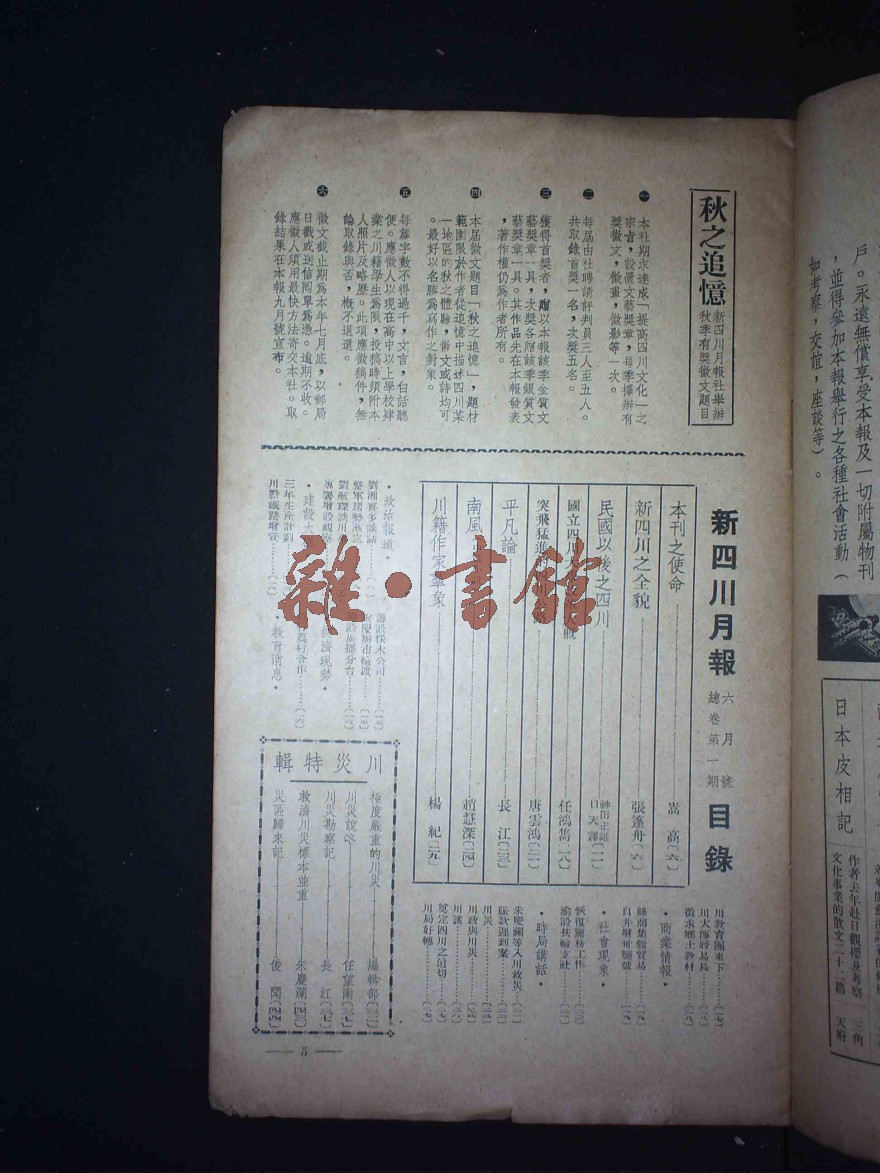 秋之追憶
新四川月報社舉辦
秋季有獎徵文題目
一 本社期求達成「提高四川文化」之
宗旨，設償文藝獎章，每季擇辦有
獎徵文，徵畫，徵影等一次。
二 每屆由社聘請評判員三人至五人。
共取錄首獎一名，次獎五名。
三 獲得首獎者，贈以本報該季金質文
藝獎章一具，次獎各贈該季銀質文
藝獎章一具。其作品先在本報發表
，著作權仍為作者所有。
四 本屆徵文題目「秋之追憶」，題材
範圍限於作者從追憶中描述四川某
一地區的秋之體驗，散文或詩均可
。最好以名勝為寫作之對象。
五 每篇字數不得過千，文言，白話聽
便。應徵人以現在高中以上學校肄
業之川籍學生為限，投稿時須附本
人照片及略歷。此項應徵稿件，無
論取錄與否，概不退還。
六 徵文截止期為本年七月底，以郵局
日戳或送信回單為憑。逾期不收。
應徵人須用最快方法寄交本社。取
錄結果在本報九月號宣布。
新四川月報 六月號 總卷第一期 目錄
本刊之使命 嵩高〔六〕
新四川之全貌 張篷舟〔六〕
民國以後之四川 神田正雄 口天譯〔一一〕
國立四川大 概 任鴻雋〔一八〕
突飛猛進 唐雲鴻〔二一〕
平凡論 長江〔二三〕
南風 趙慧深〔二四〕
川籍作家羣象 楊紀〔二五〕
・政治報道・
劉湘喜多談話
劉航琛談川
專署增設視察
・建設大
三年生產計劃
川黔鐵路增資
籌設採木公司
重慶辦市輪渡
設廣播分台
經濟現勢・
農村合作
・教育消息・
川教育團東下
川大傅將易長
徵求鄉土教材
・商業情報・
絲商集體貿易
自井增卅鹽號
・社會現象・
恢復廟務工作
渝設扶輪支社
・時局講話・
朱慶瀾等入川救災
賑款遲到案
川災
川政與川災
川謠
奠定四川之迫切
川局好轉
川災特輯
極度嚴重的川災 編輯部
川災說咎 任望南
川災勘察記 長江
救濟川災標本並重 朱慶瀾
災區歸來記 俊聞
— 5 —
雜・書館
戶。永遠無償享受本報及一切附屬物刊
，並得參加本報舉行之各種社會活動（
如考察，交誼，座談等）。
日本皮相記
作者去年赴日觀櫻及考察
文化事業的散文二十二篇
三角
天府